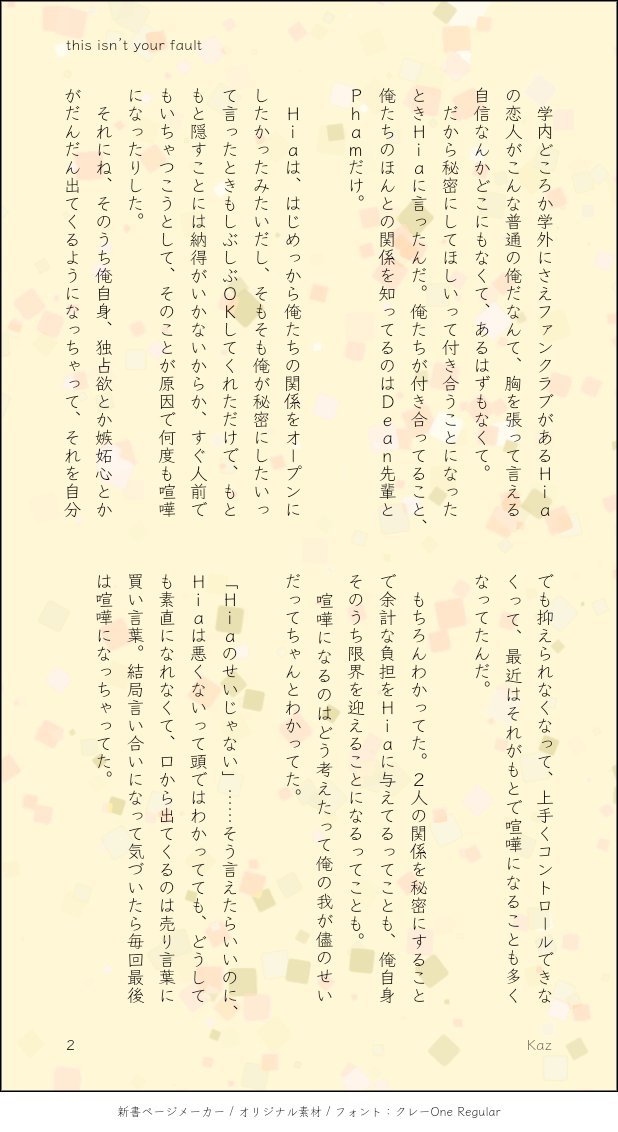 this isn't your fault
　学内どころか学外にさえファンクラブがあるHia
の恋人がこんな普通の俺だなんて、胸を張って言える
自信なんかどこにもなくて、あるはずもなくて。
　だから秘密にしてほしいって付き合うことになった
ときHiaに言ったんだ。俺たちが付き合ってること、
俺たちのほんとの関係を知ってるのはDean先輩と
Phamだけ。
　Hiaは、はじめっから俺たちの関係をオープンに
したかったみたいだし、そもそも俺が秘密にしたいっ
て言ったときもしぶしぶOKしてくれただけで、もと
もと隠すことには納得がいかないからか、すぐ人前で
もいちゃつこうとして、そのことが原因で何度も喧嘩
になったりした。
　それにね、そのうち俺自身、独占欲とか嫉妬心とか
がだんだん出てくるようになっちゃって、それを自分
でも抑えられなくなって、上手くコントロールできな
くって、最近はそれがもとで喧嘩になることも多く
なってたんだ。
　もちろんわかってた。2人の関係を秘密にすること
で余計な負担をHiaに与えてるってことも、俺自身
そのうち限界を迎えることになるってことも。
　喧嘩になるのはどう考えたって俺の我が儘のせい
だってちゃんとわかってた。
「Hiaのせいじゃない」……そう言えたらいいのに、
Hiaは悪くないって頭ではわかってても、どうして
も素直になれなくて、口から出てくるのは売り言葉に
買い言葉。結局言い合いになって気づいたら毎回最後
は喧嘩になっちゃってた。
2
Kaz
新書ページメーカー / オリジナル素材 / フォント：クレーOne Regular